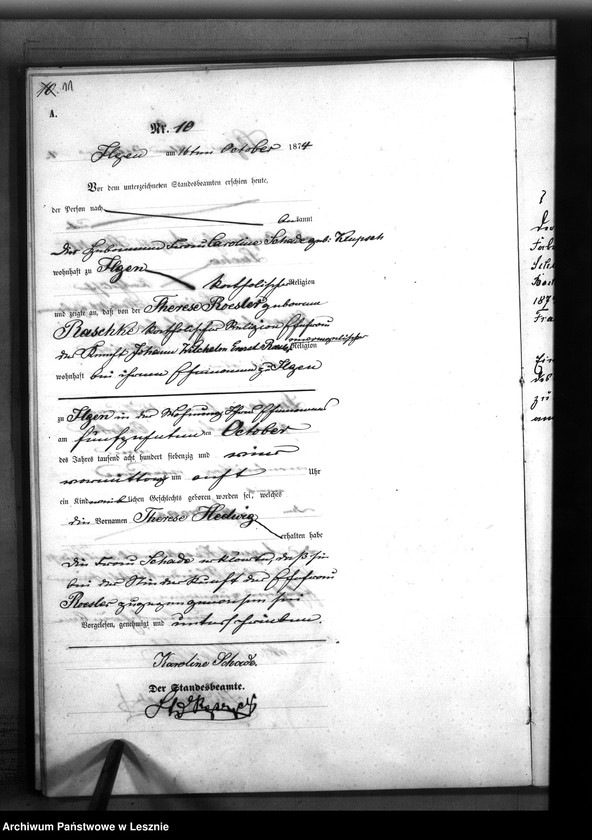 10. 11
A.
Nr. 10
Ilgen am 16ten October 1874
Vor dem unterzeichneten Standesbeamten erschien heute,
der Person nach
kannt
Die Hebamme Frau Caroline Schade geb:
wohnhaft zu Ilgen
katholischer Religion
und zeigte an, daß von der Therese Roesler geborene
Raschke katholischer Religion Ehefrau
des Johann Wilhelm Roesler evangelischer Religion
wohnhaft bei ihrem Ehemanne zu Ilgen
zu Ilgen in der Wohnung ihres Ehemannes
am fünfzehnten den October
des Jahres tausend acht hundert siebenzig und vier
vormittags um acht Uhr
ein Kind weiblichen Geschlechts geboren worden sei, welches
die Vornamen Therese Hedwig
erhalten habe
Die Frau Schade erklärte, daß sie
bei der Niederkunft der Ehefrau
Roesler zugegen gewesen sei
Vorgelesen, genehmigt und unterschrieben.
Karoline Schade.
Der Standesbeamte.
?
187
zu
Archiwum Państwowe w Lesznie